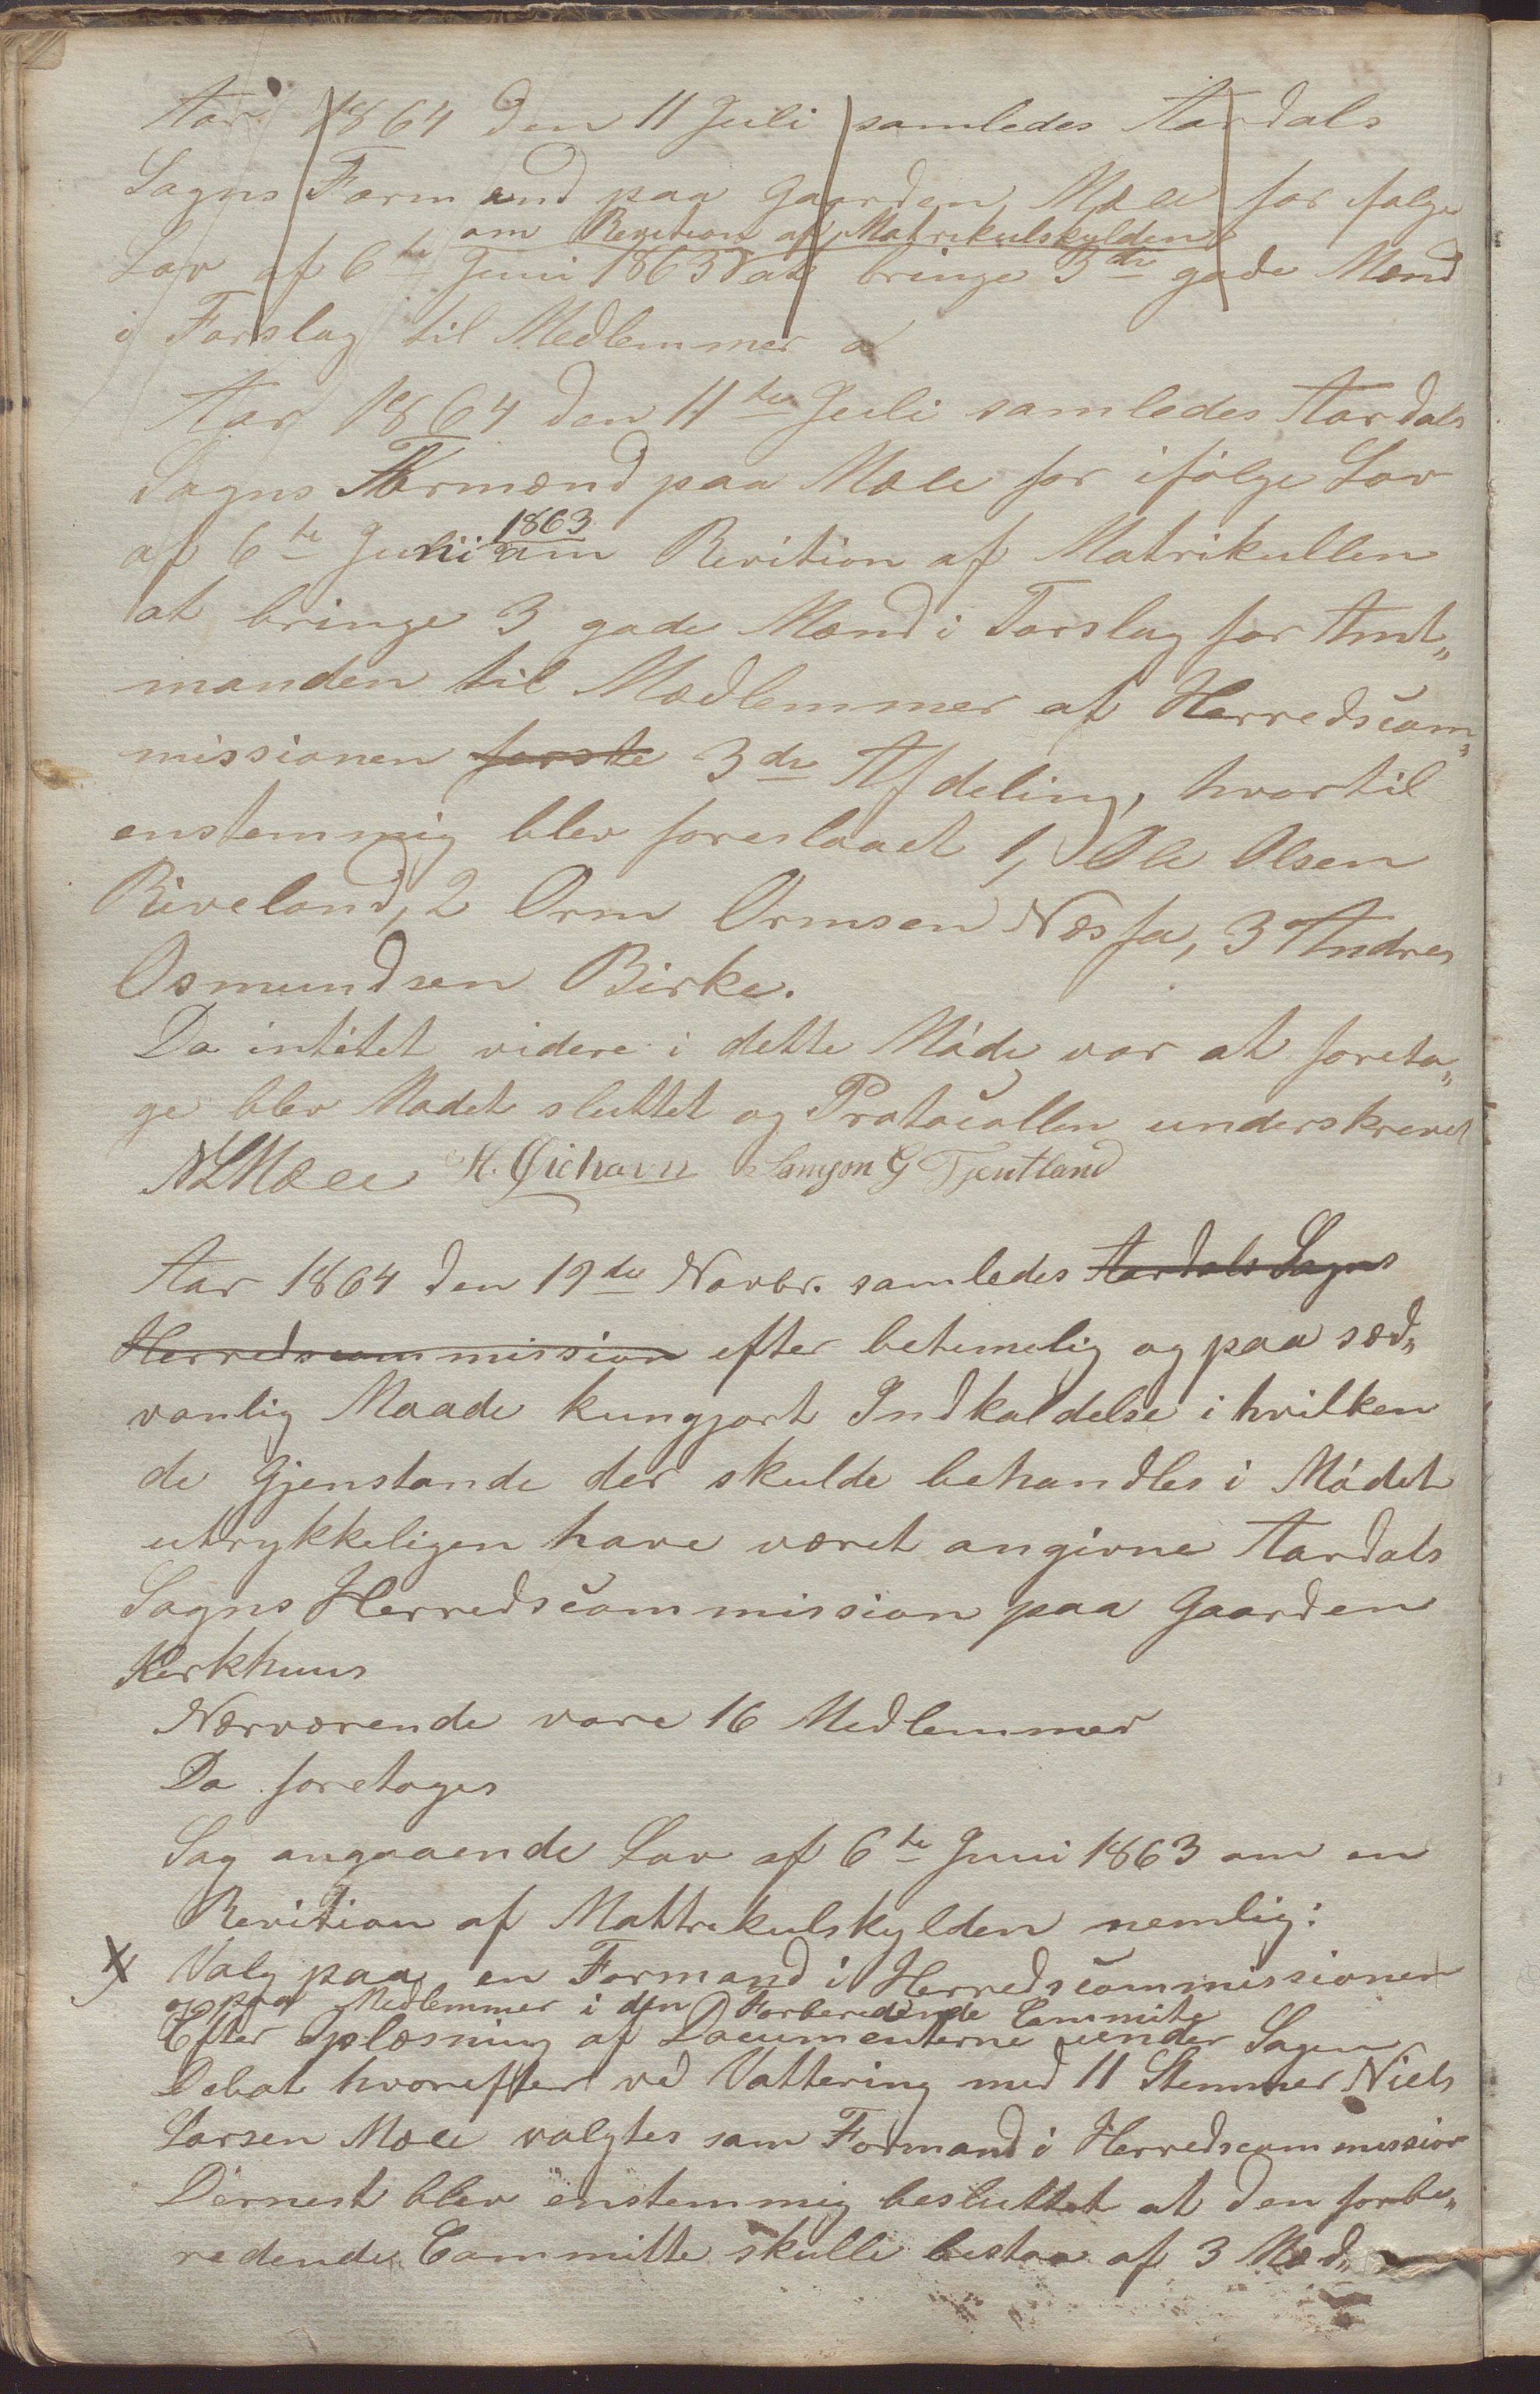 Aar 1864 den 11 Juli samledes Aardals
Sogns Formænd paa Gaarden Mæle for følge
om Revition af Matrikulskylden
Lov af 6te Juni 1863 at bringe 3de gode Mænd
i Forslag til Medlemmer a
Aar 1864 den 11te Juli samledes Aardals
Sogns Formænd paa Mæle for ifølge Lov
1863
af 6te Juni om Revition af Matrikullen
at bringe 3 gode Mænd i Forslag for Amt„
manden til Medlemmer af Herredscom„
missionen første 3die Afdeling, hvortil
enstemmig blev foreslaaet 1, Ole Olsen
Riveland, 2 Orm Ormsen Næsse, 3 Andres
Osmundsen Birke.
Da intetet videre i dette Møde var at foreta„
ge blev Mødet sluttet og Protocollen underskrevet
NLMæle H. Øiehavn Samson G Tjentland
Aar 1864 den 19de Novbr. samledes Aardals Sogns
Herredscommission efter betimelig og paa sæd„
vanlig Maade kungjort Indkaldelse i hvilken
de Gjenstande der skulde behandles i Mødet
utrykkeligen have været angivne Aardals
Sogns Herredscommission paa Gaarden
Kirkhuus
Nærværende vare 16 Medlemmer
Da foretoges
Sag angaaende Lov af 6te Juni 1863 om en
Revition af Mattrikulskylden nemlig:
Valg paa en Formand i Herredscommissionen
og paa Medlemmer i den Forberedende Commite
Efter Oplæsning af Documenterne under Sagen
Debat hvorefter ved Vattering med 11 Stemmer Niels
Larsen Mæle valgtes som Formand i Herredscommission
Dernest blev enstemmig besluttet at den forbe„
redende Committe skulle bestaa af 3 Med„